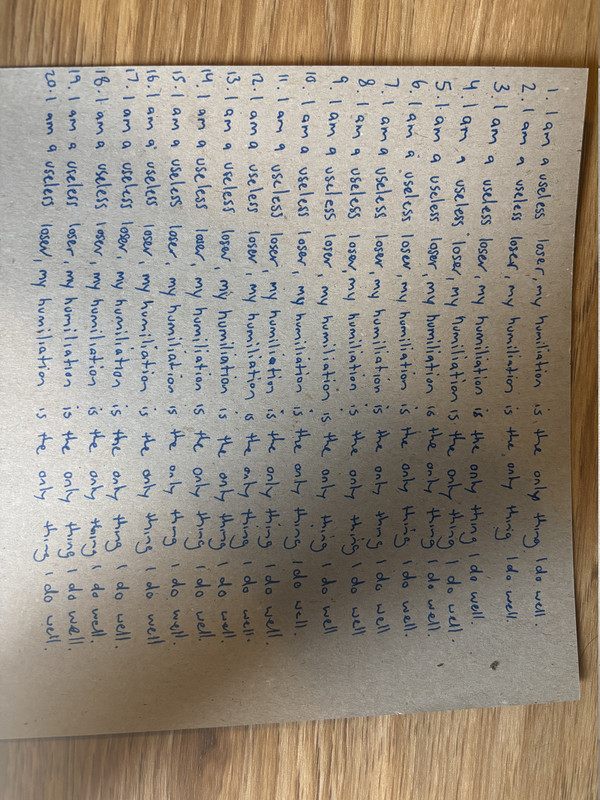 1. I am a useless loser, my humiliation is the only thing I do well.
2. I am a useless loser, my humiliation is the only thing I do well.
3. I am a useless loser, my humiliation is the only thing I do well.
4. I am a useless loser, my humiliation is the only thing I do well.
5. I am a useless loser, my humiliation is the only thing I do well.
6. I am a useless loser, my humiliation is the only thing I do well.
7. I am a useless loser, my humiliation is the only thing I do well.
8. I am a useless loser, my humiliation is the only thing I do well.
9. I am a useless loser, my humiliation is the only thing I do well.
10. I am a useless loser, my humiliation is the only thing I do well.
11. I am a useless loser, my humiliation is the only thing I do well.
12. I am a useless loser, my humiliation is the only thing I do well.
13. I am a useless loser, my humiliation is the only thing I do well.
14. I am a useless loser, my humiliation is the only thing I do well.
15. I am a useless loser, my humiliation is the only thing I do well.
16. I am a useless loser, my humiliation is the only thing I do well
17. I am a useless loser, my humiliation is the only thing I do well.
18. I am a useless loser, my humiliation is the only thing I do well.
19. I am a useless loser, my humiliation is the only thing I do well.
20. I am a useless loser, my humiliation is the only thing I do well.